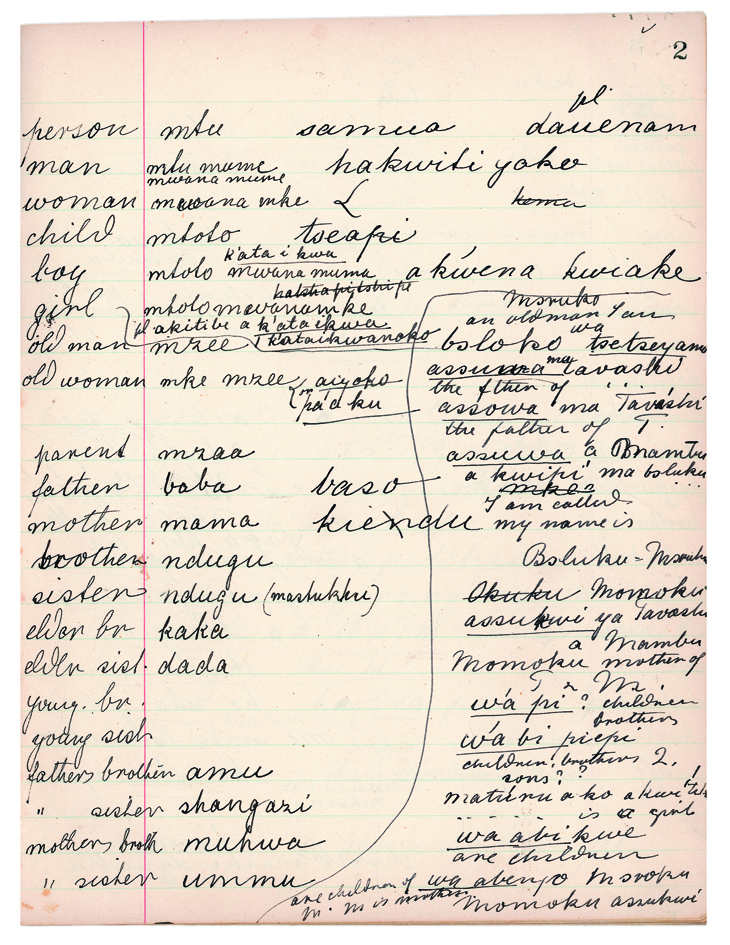 2
pl
person mtu samua dauenam
man mtu mume hakwiti yoko
mwana mume
woman mwana mke koma
child mtoto tseapi
k'ata i kwa
boy mtoto mwana muma a k'wena kwiake
girl mtoto mwanamke
pl akitibe a k'ata ikwa
k'ataikwanoko
old man mzee
old woman mke mzee or aiyoko
pa'a ku
parent mzaa
father baba baso
mother mama kiendu
brother ndugu
sister ndugu (mashukhu)
elder br kaka
elder sist. dada
young. br.
young sist
fathers brother amu
" sister shangazi
mothers broth muhwa
" sister ummu
Msruko
an old man I am
wa
bsloko tsetseyama
assuwa ma Tavashi
the fther of
assowa ma Tavashi
the father of T.
assuwa a Mambu
a kwipi ma bsluku
mke =
I am called
my name is
Bsluku = Msruku
Okuku Momoku
assukwi ya Tavashi
a Mambu
Momoku mother of
T n M
w'a pi ? children
brothers
w'a bi piepi
children? brothers 2.
sons? ?
maturu ako akwi
is a girl
wa abi kwe
are children
are children of wa abenjo Msroku
M. M is mother Momoku assukwi